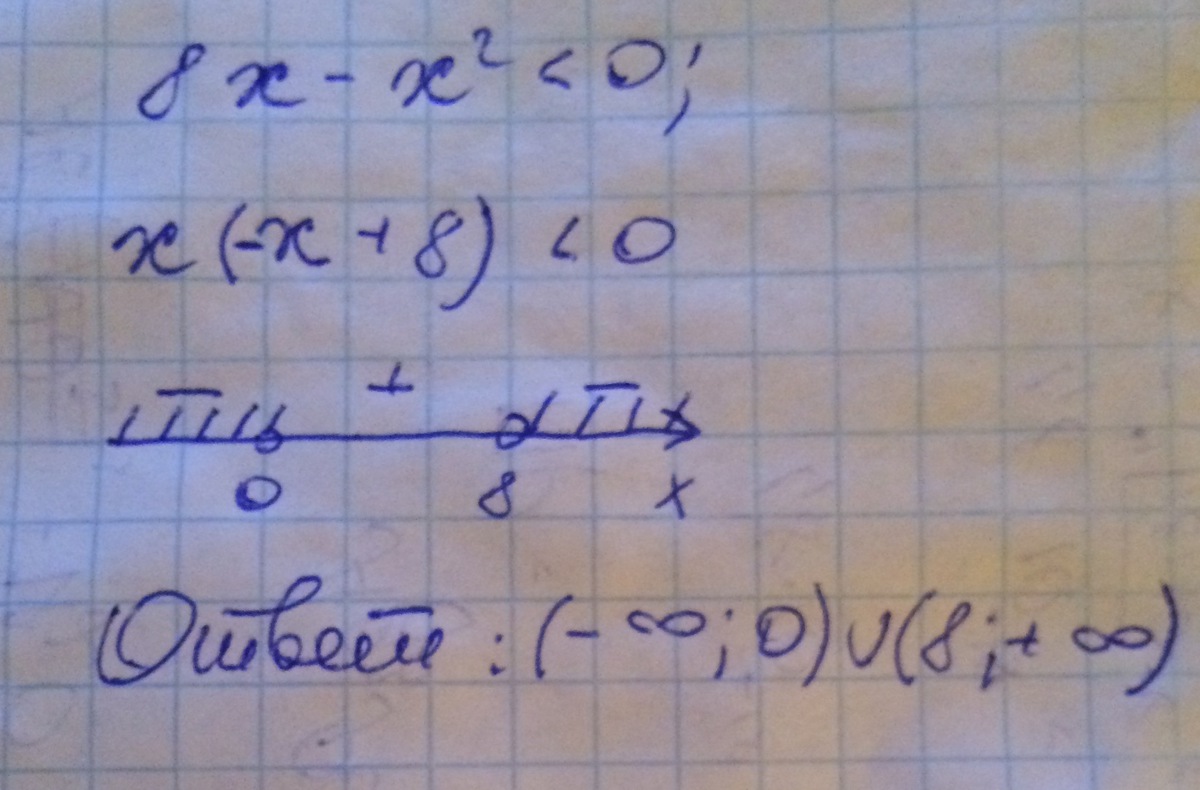 8x - x² < 0;
x(-x + 8) < 0
− + −
0 8 x
Ответ: (- ∞; 0) ∪ (8; + ∞)